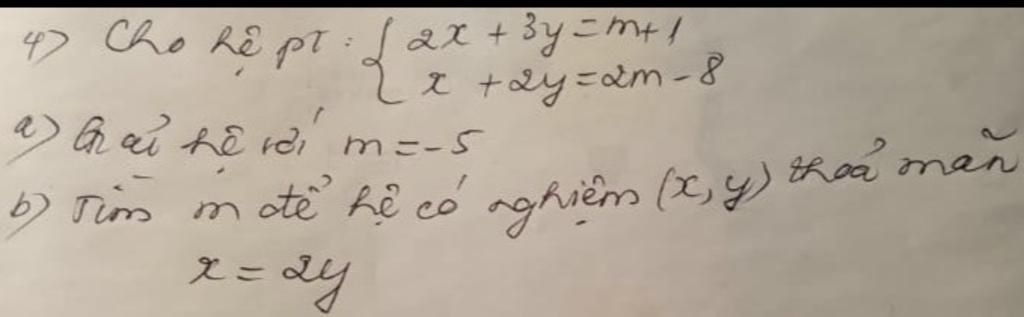 4) Cho hệ pT: { 2x + 3y = m+1
x + 2y = 2m - 8
a) Giải hệ với m = -5
b) Tìm m để hệ có nghiệm (x, y) thoả mãn
x = 2y